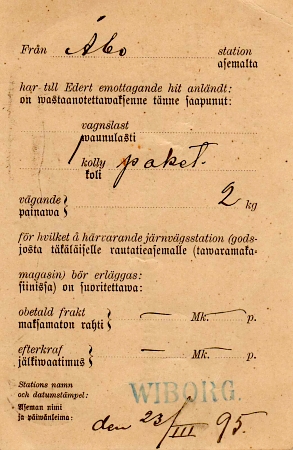 Från Åbo station
asemalta
har till Edert emottagande hit anländt:
on wastaanotettawaksenne tänne saapunut:
vagnslast
waunulasti
1 kolly paket.
koli
vägande
painawa } 2 kg
för hvilket å härvarande järnvägsstation (gods-
josta täkäläiselle rautatieasemalle (tawaramaka-
magasin) bör erläggas:
siinissa) on suoritettawa:
obetald frakt
maksamaton rahti } — Mk. — p.
efterkraf
jälkiwaatimus } — Mk. — p.
Stations namn
och datumstämpel:
Aseman nimi
ja päivänleima:
WIBORG.
den 23/III 95.